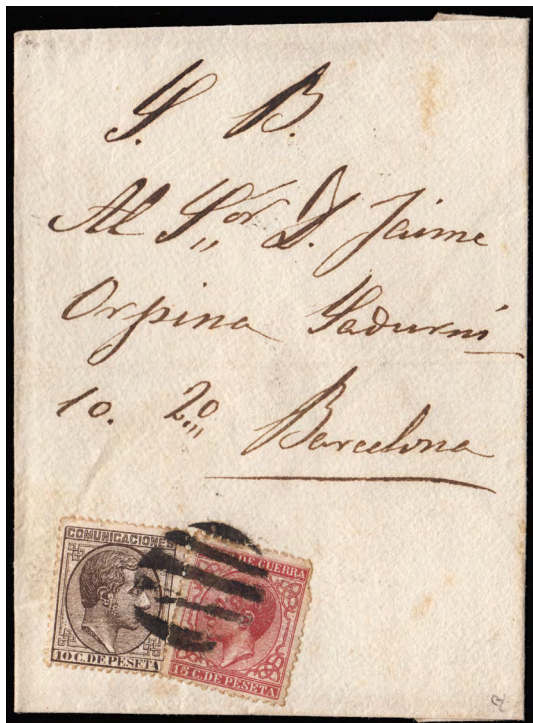 S. B.
Al Sor D. Jaime
Orpina Sadurní
10. 2o
Barcelona
COMUNICACIONES
10 C. DE PESETA
DE GUERRA
15 C. DE PESETA